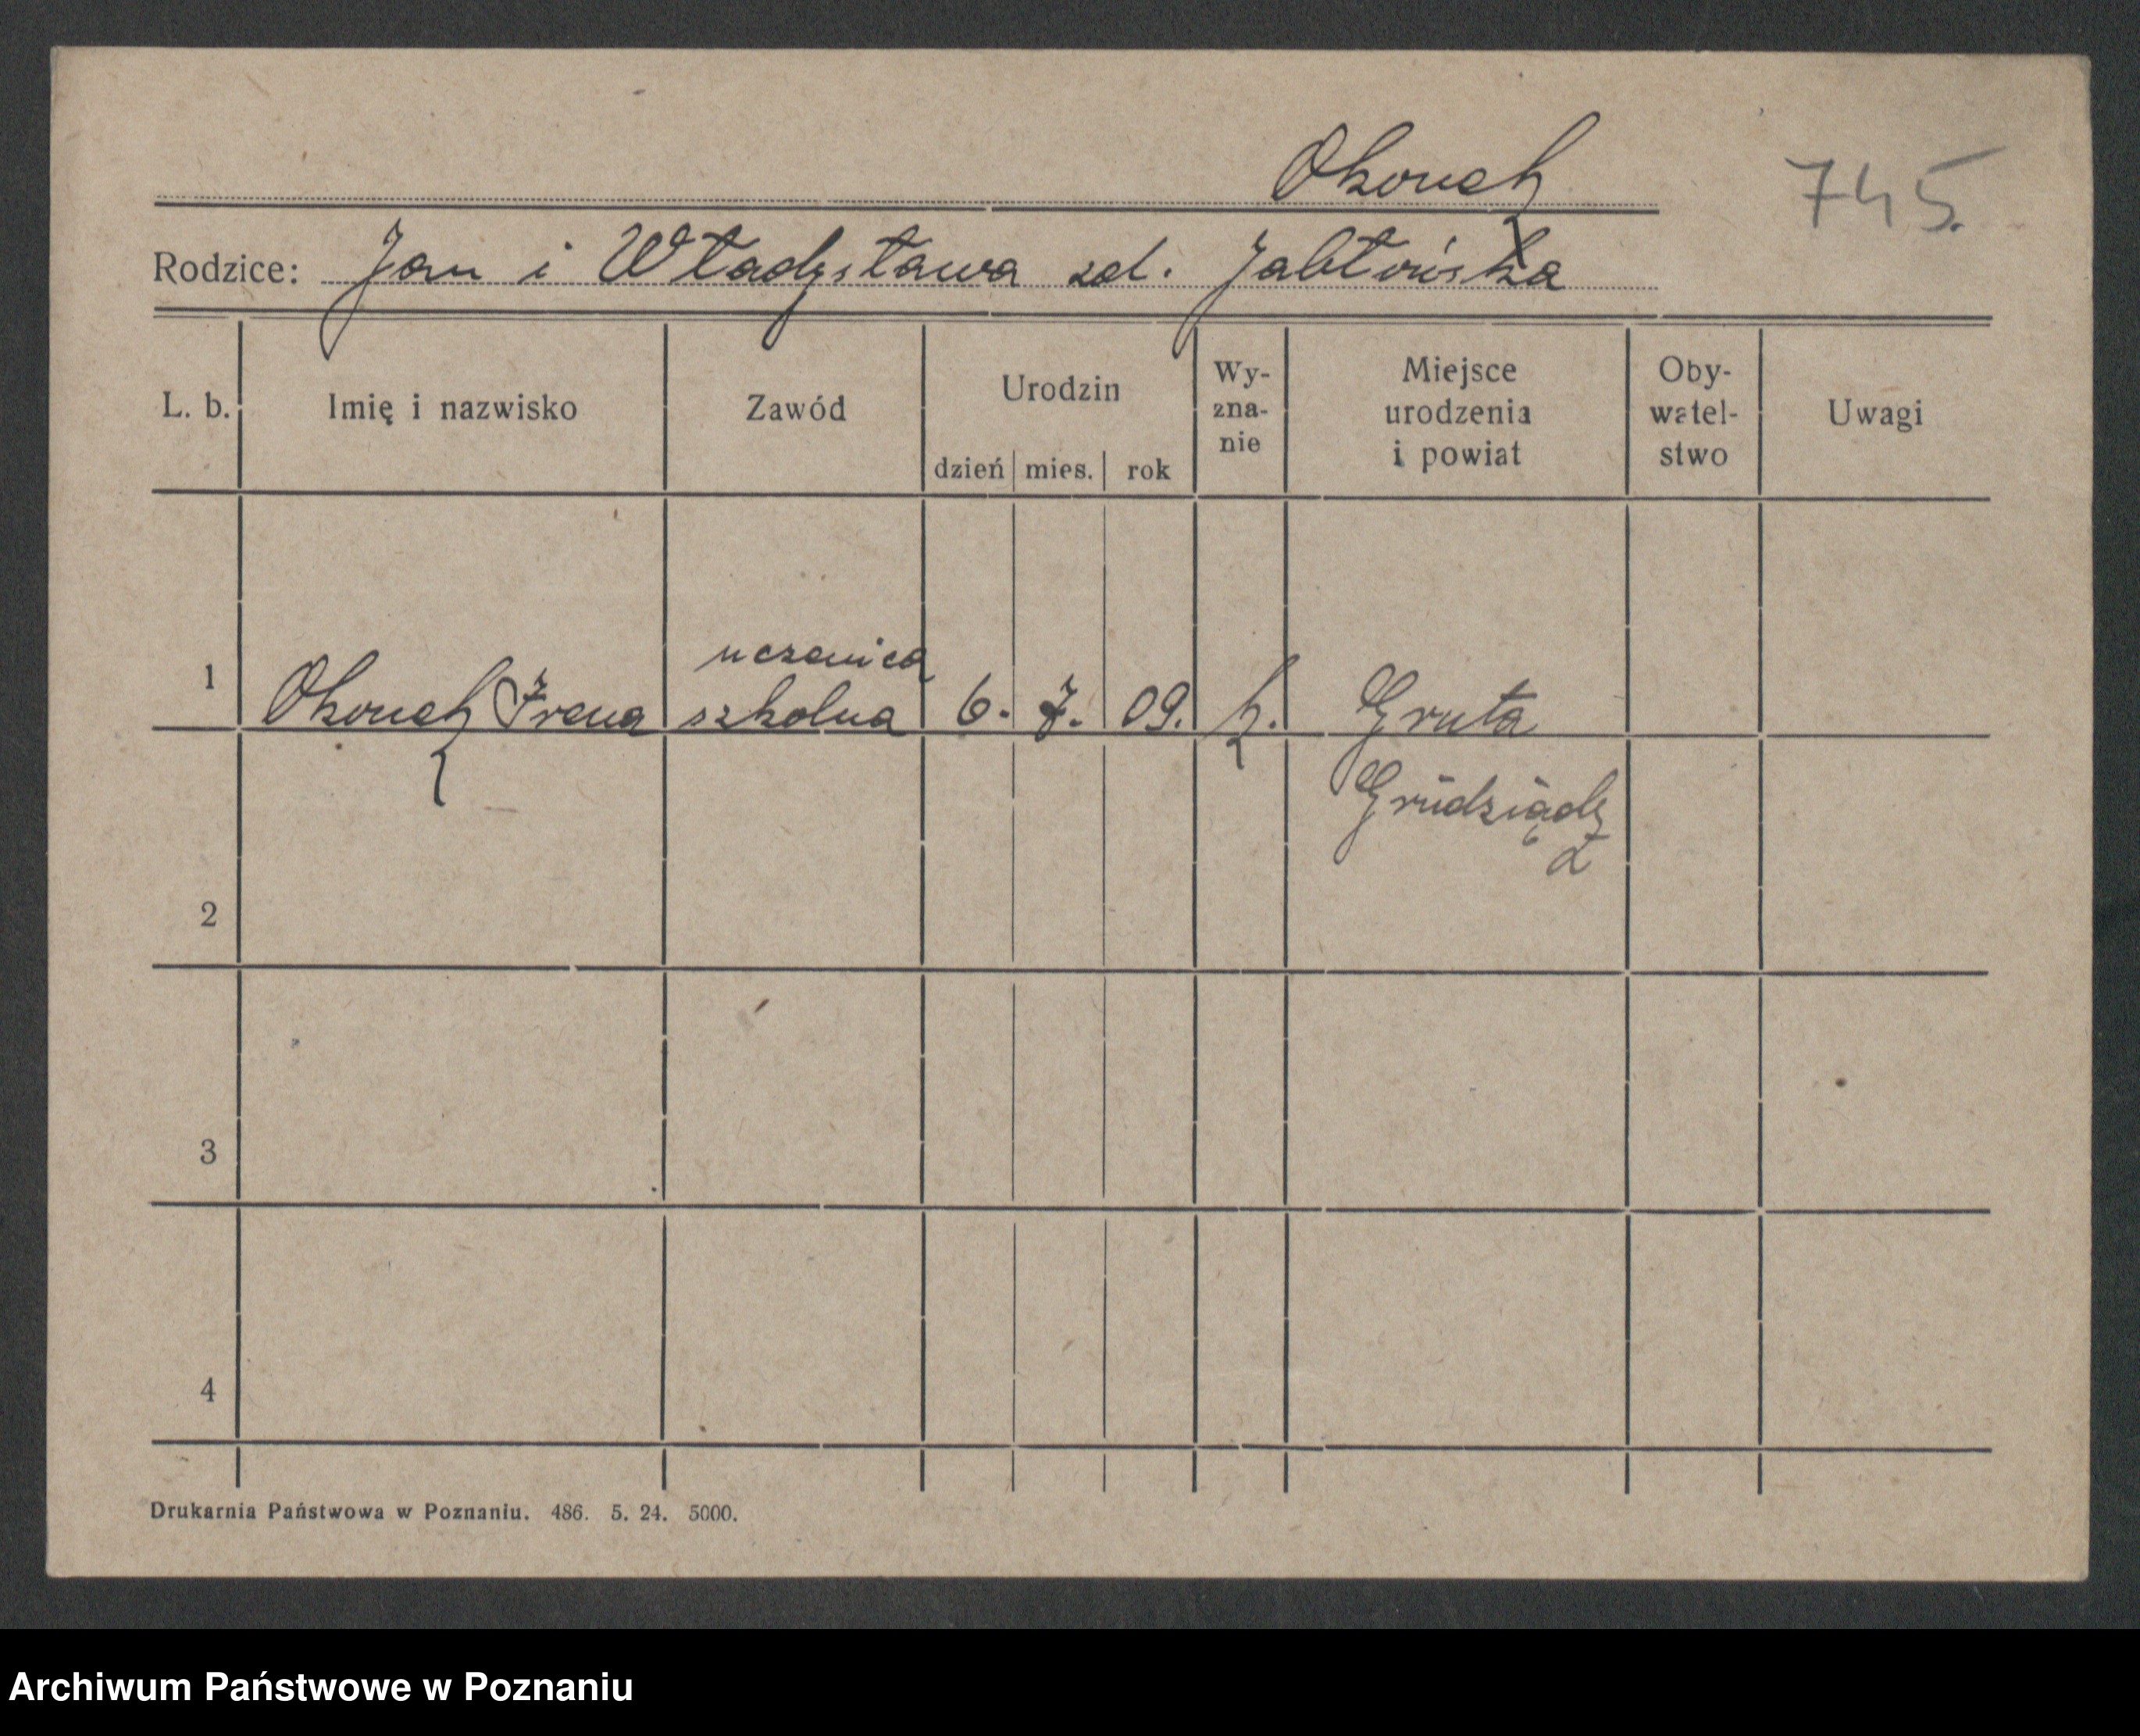 Okonek
745.
Rodzice: Jan i Władysława zd. Jabłońska
L. b.
Imię i nazwisko
Zawód
Urodzin
dzień
mies.
rok
Wy-
zna-
nie
Miejsce
urodzenia
i powiat
Oby-
watel-
stwo
Uwagi
uczenica
1 Okonek Irena szkolna 6. 7. 09. k. Gruta
Grudziądz
2
3
4
Drukarnia Państwowa w Poznaniu. 486. 5. 24. 5000.
Archiwum Państwowe w Poznaniu